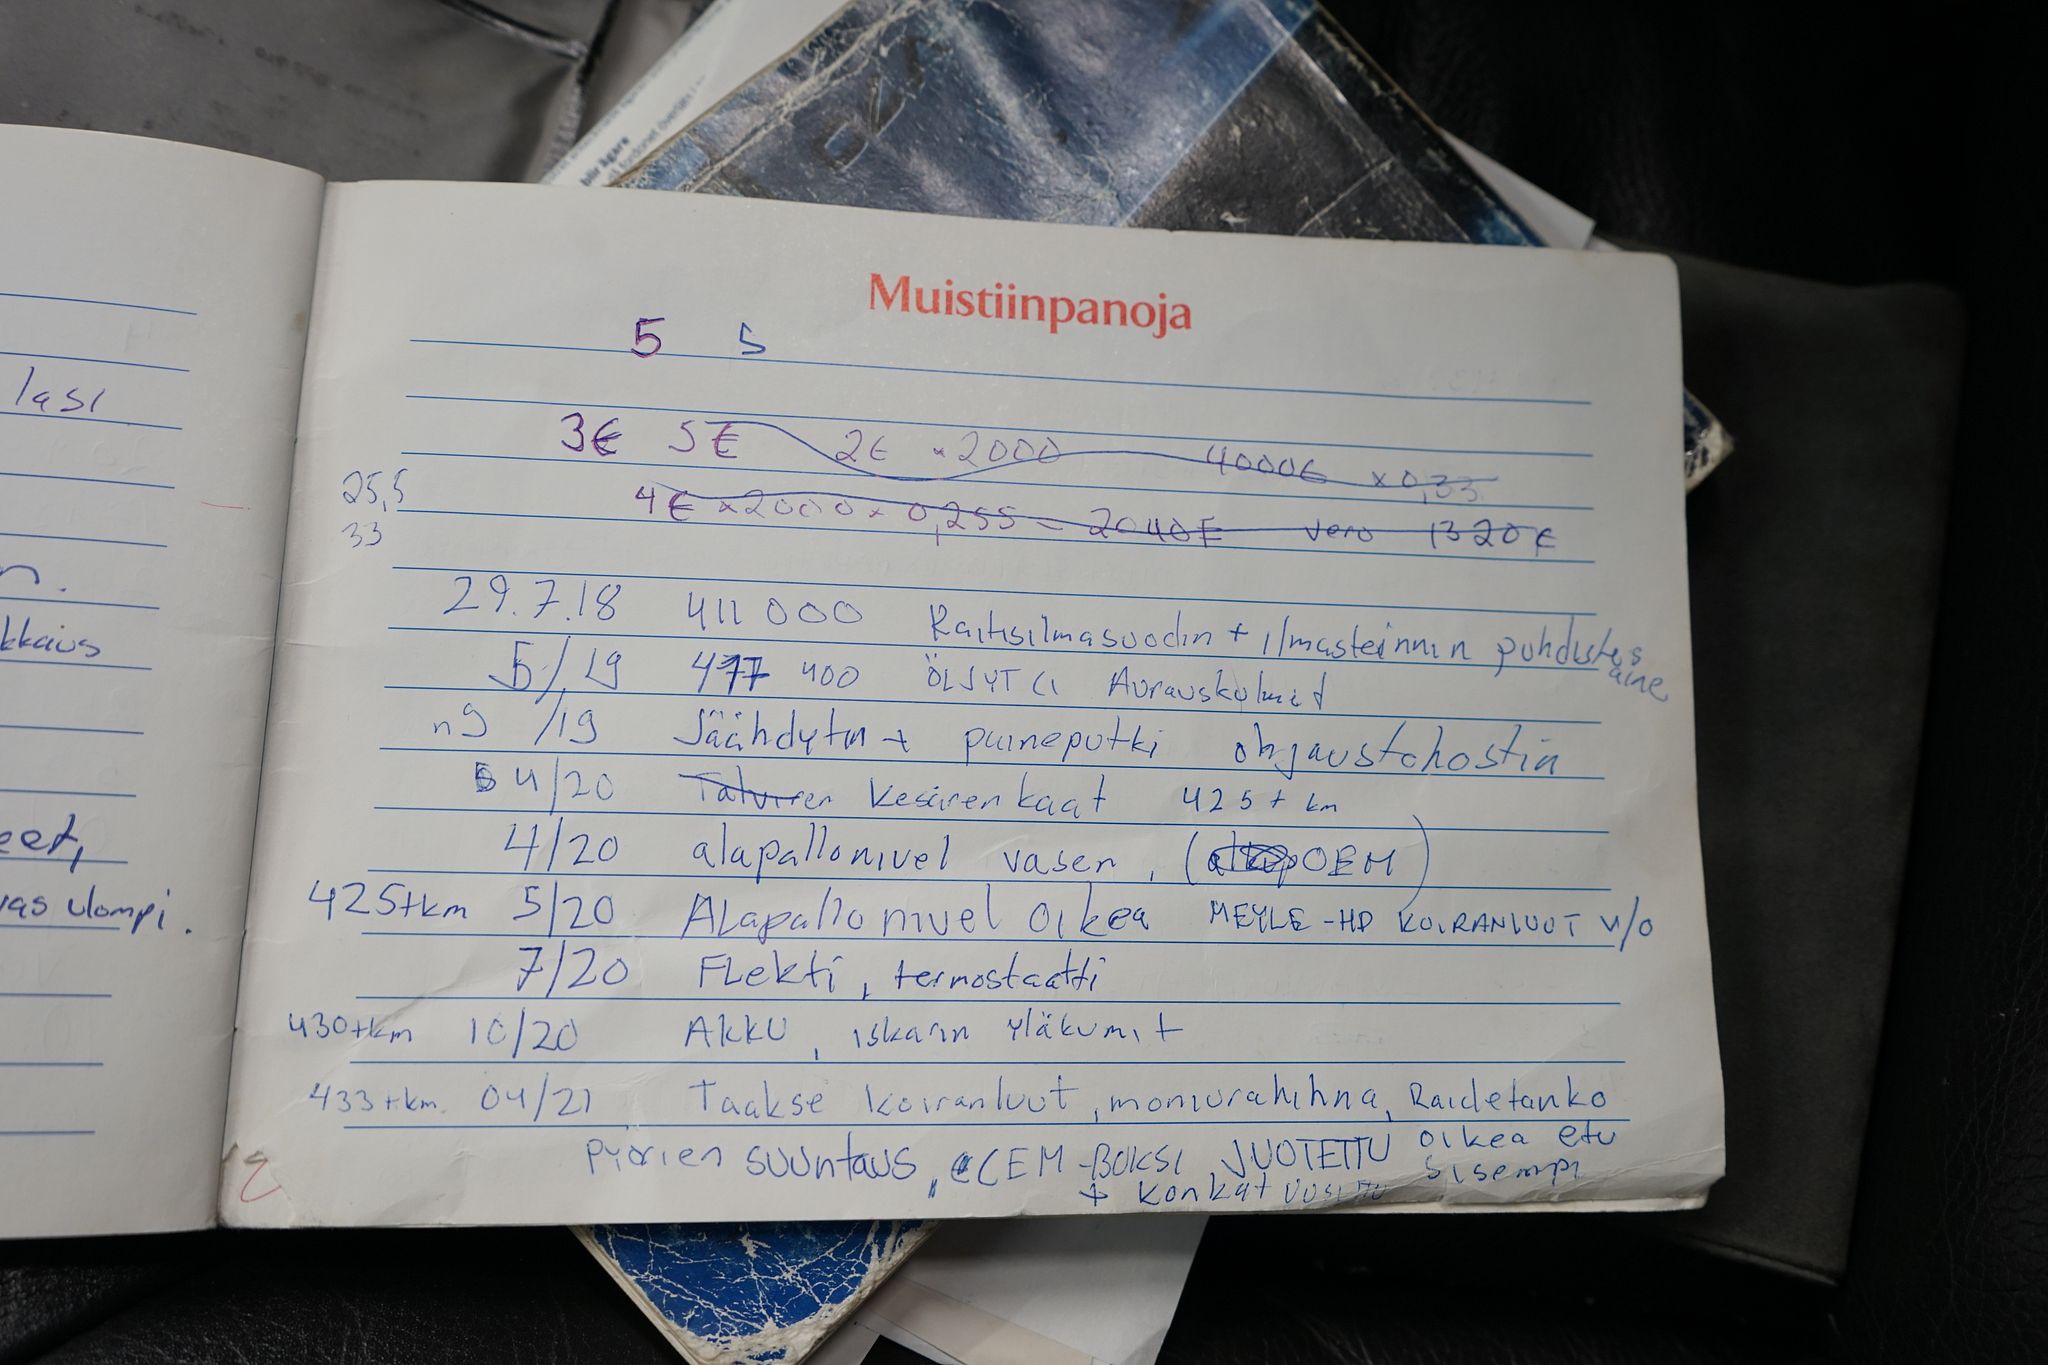 lasi
kkaus
eet,
vas ulompi.
Muistiinpanoja
5 5
3€ 5€ 2€ × 2000 4000€ × 0,33
25,5
4€ × 2000 × 0,255 = 2040€ vero 1320€
33
29.7.18 411 000 Raitisilmasuodin + ilmastoinnin puhdistus
aine
5/19 417 400 ÖLJYT CI Aurauskulmat
n9 /19 Jäähdytin + paineputki ohjaustehostin
4/20 Talviren kesärenkaat 425 t km
4/20 alapallonivel vasen, (OEM)
425tkm 5/20 ALapallonivel oikea MEYLE-HD KOIRANLUUT v/o
7/20 FLekti, termostaatti
430tkm 10/20 AKKU, iskarin yläkumit
433tkm. 04/21 Taakse koiranluut, moniurahihna, Raidetanko
Pyörien suuntaus, CEM-BOKSI JUOTETTU oikea etu
sisempi
+ konkat uusittu